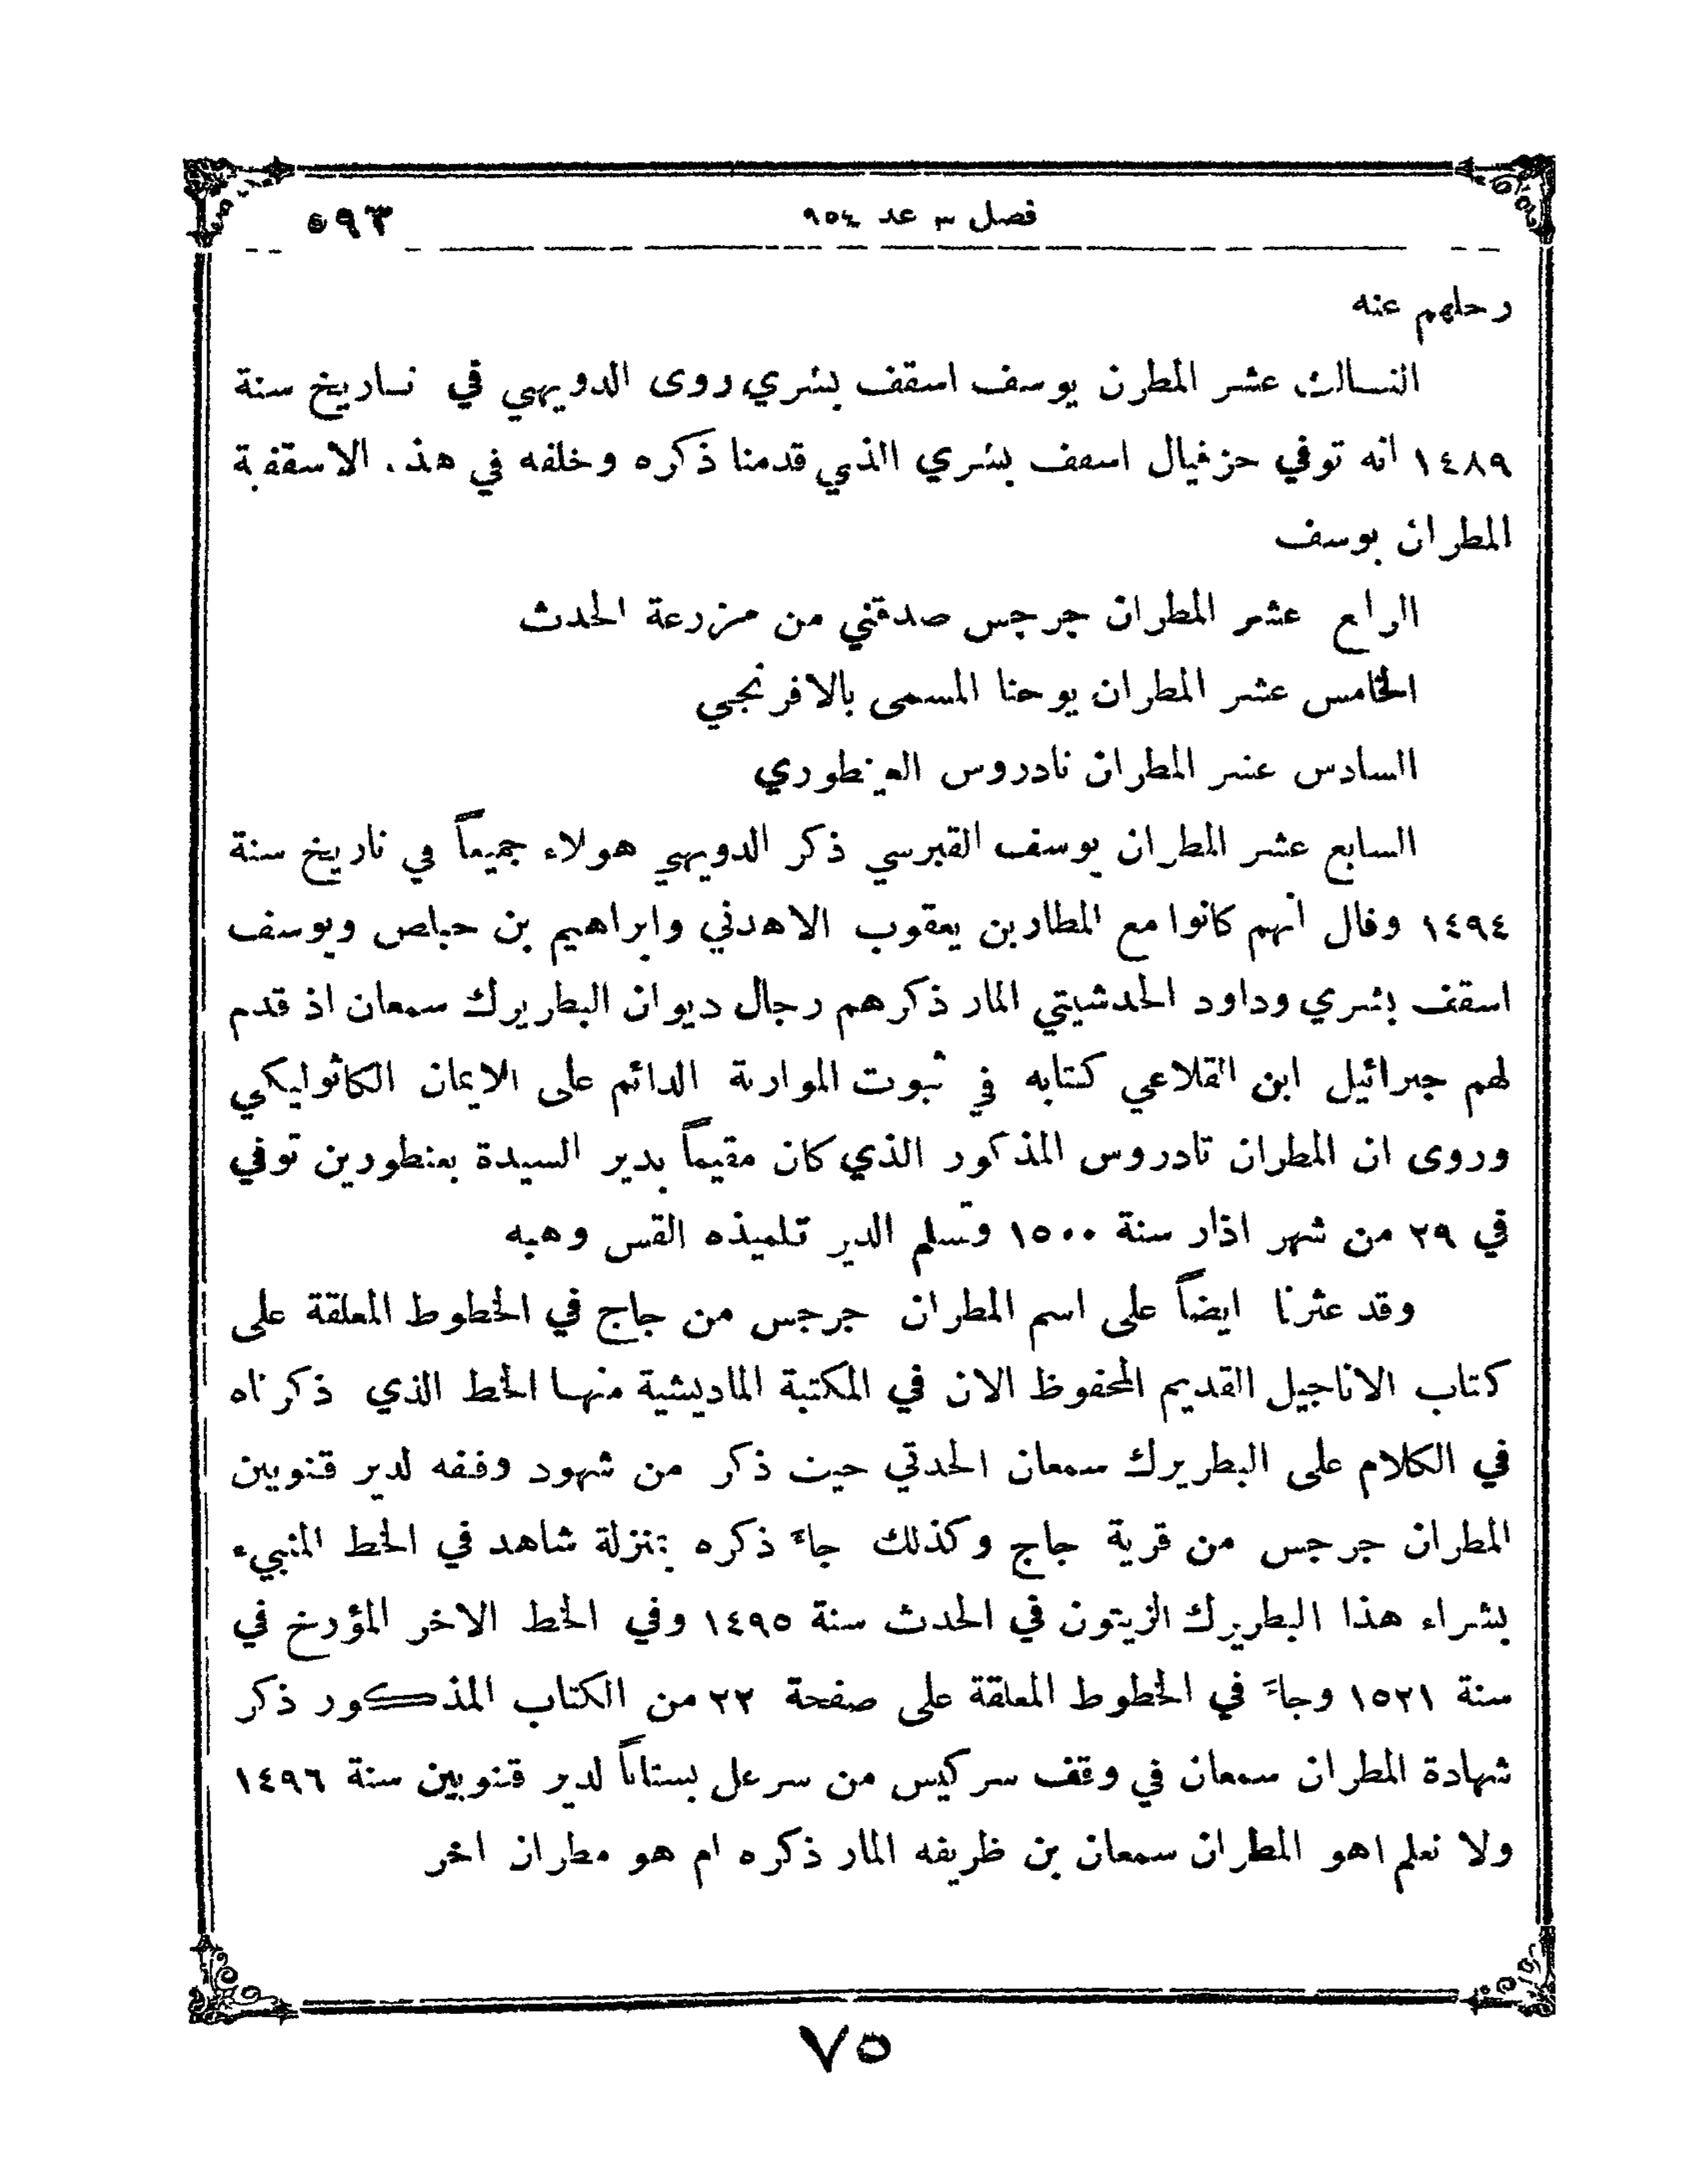 فصل ٣ عد ٩٥٤ ٥٩٣
رحلهم عنه
الثالث عشر المطرن يوسف اسقف بشري روى الدويهي في تاريخ سنة
١٤٨٩ انه توفي حزقيال اسقف بشري الذي قدمنا ذكره وخلفه في هذه الاسقفية
المطران يوسف
الرابع عشر المطران جرجس صدقني من مزرعة الحدث
الخامس عشر المطران يوحنا المسمى بالافرنجي
السادس عشر المطران تادروس العنطوري
السابع عشر المطران يوسف القبرسي ذكر الدويهي هولاء جميعاً في تاريخ سنة
١٤٩٤ وقال انهم كانوا مع المطارين يعقوب الاهدني وابراهيم بن حبلص ويوسف
اسقف بشري وداود الحدشيتي المار ذكرهم رجال ديوان البطريرك سمعان اذ قدم
لهم جبرائيل ابن القلاعي كتابه في ثبوت الموارنة الدائم على الايمان الكاثوليكي
وروى ان المطران تادروس المذكور الذي كان مقيماً بدير السيدة بعنطورين توفي
في ٢٩ من شهر اذار سنة ١٥٠٠ وتسلم الدير تلميذه القس وهبه
وقد عثرنا ايضاً على اسم المطران جرجس من جاج في الخطوط المعلقة على
كتاب الاناجيل القديم المحفوظ الان في المكتبة الماديشية منها الخط الذي ذكرناه
في الكلام على البطريرك سمعان الحدثي حيث ذكر من شهود وقفه لدير قنوبين
المطران جرجس من قرية جاج وكذلك جاءَ ذكره بمنزلة شاهد في الخط المنبيء
بشراء هذا البطريرك الزيتون في الحدث سنة ١٤٩٥ وفي الخط الاخر المؤرخ في
سنة ١٥٢١ وجاءَ في الخطوط المعلقة على صفحة ٢٢ من الكتاب المذكور ذكر
شهادة المطران سمعان في وقف سركيس من سرعل بستاناً لدير قنوبين سنة ١٤٩٦
ولا نعلم اهو المطران سمعان بن ظريفه المار ذكره ام هو مطران اخر
٧٥